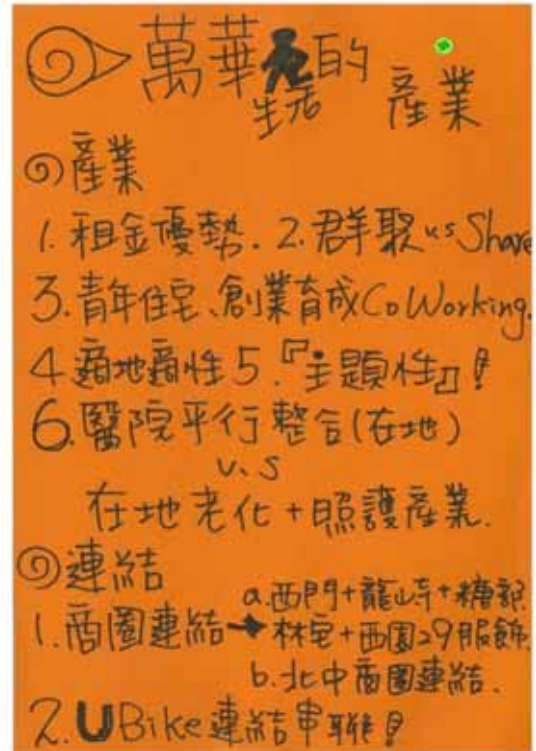 萬華的
生活 產業
産業
1. 租金優勢. 2. 群聚 vs Share
3. 青年住宅、創業育成CoWorking.
4. 適地適性 5.『主題性』!
6. 醫院平行整合(在地)
v.s
在地老化+照護產業.
連結
1. 商圈連結→
a. 西門+龍山寺+糖廍
林宅+西園29服飾.
b. 北中商圈連結.
2. UBike連結串聯!